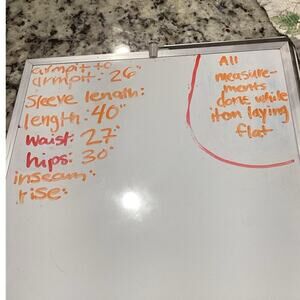 armpit to
armpit: 26"
sleeve length:
length: 40"
waist: 27"
hips: 30"
inseam:
rise:
All
measure-
ments
done while
item laying
flat